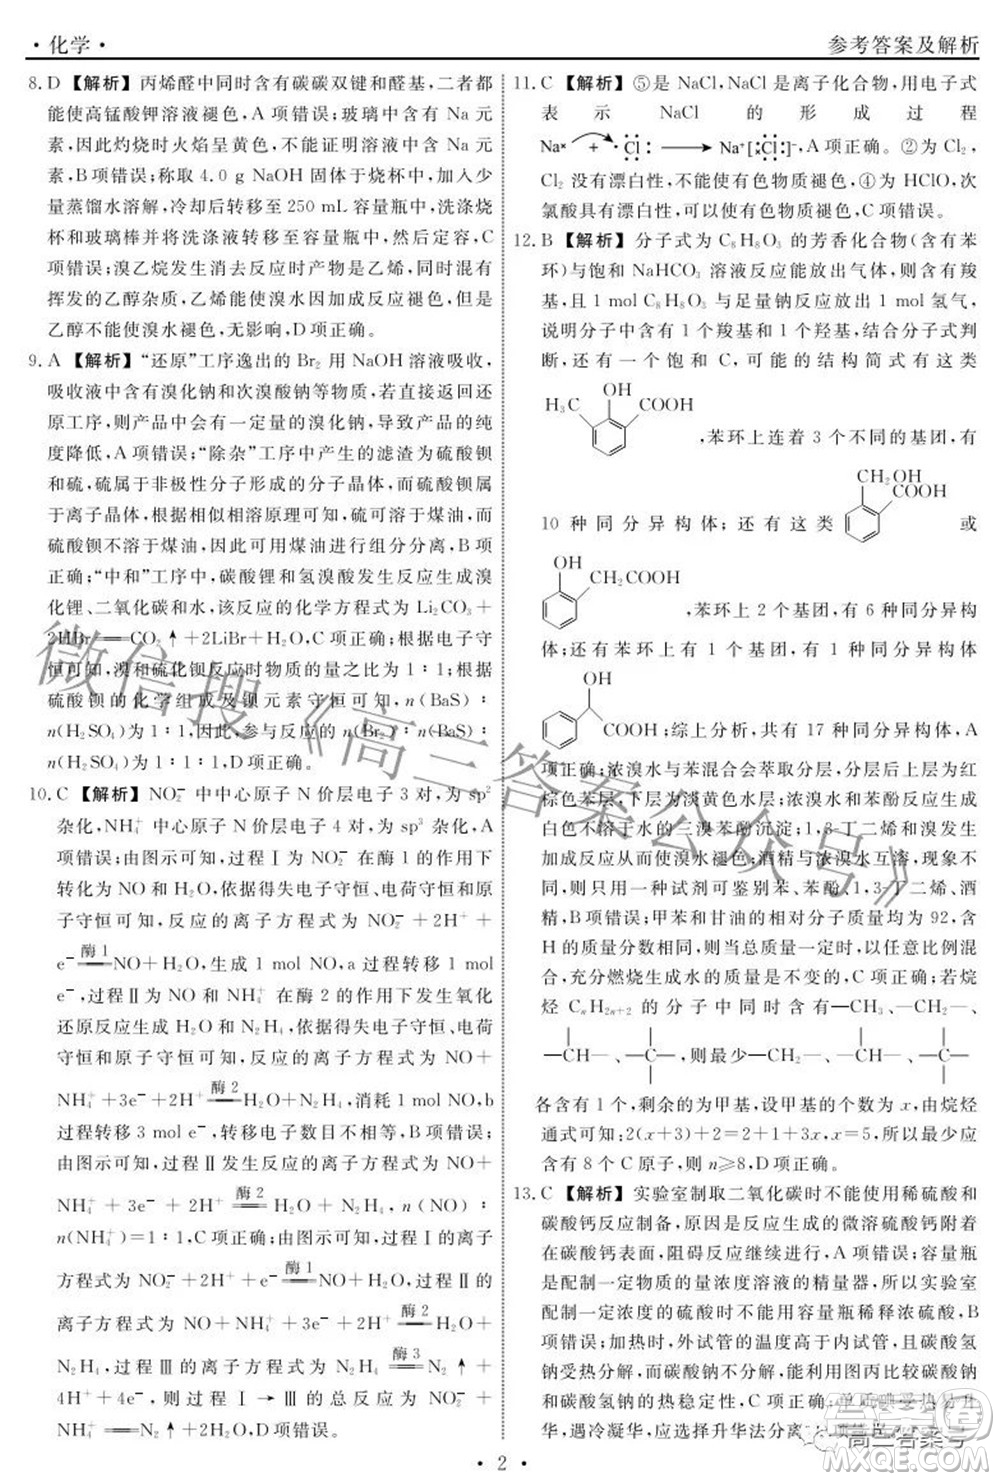 ·化学·
参考答案及解析
8. D 【解析】丙烯醛中同时含有碳碳双键和醛基,二者都
能使高锰酸钾溶液褪色,A项错误;玻璃中含有 Na 元
素,因此灼烧时火焰呈黄色,不能证明溶液中含 Na 元
素,B项错误;称取 4.0 g NaOH 固体于烧杯中,加入少
量蒸馏水溶解,冷却后转移至 250 mL 容量瓶中,洗涤烧
杯和玻璃棒并将洗涤液转移至容量瓶中,定容,摇匀,C
项错误;溴乙烷发生消去反应生成了乙烯,气体中混有
挥发的乙醇杂质,乙烯能与溴水加成而使溴水褪色,而
乙醇不能使溴水褪色,D项正确。
9. A 【解析】“还原”工序逸出的 Br₂ 用 NaOH 溶液吸收,
吸收液中含有溴化钠和次溴酸钠等物质,若直接返回还
原工序,则产品中含有一定量的溴化钠,导致产品的纯
度降低,A项错误;“除杂”工序中产生的滤渣为硫酸钡
和硫,硫属于非极性分子形成的分子晶体,而硫酸钡属
于离子晶体,根据相似相溶原理可知,硫可溶于煤油,而
硫酸钡不溶于煤油,因此可用煤油进行组分分离,B项
正确;“中和”工序中,碳酸锂和氢溴酸发生反应生成溴
化锂、二氧化碳和水,该反应的化学方程式为 Li₂CO₃+
2HBr══CO₂↑+2LiBr+H₂O,C项正确;根据电子守
恒可知,溴和硫化钡反应时物质的量之比为 1∶1;根据
硫酸钡的化学组成及钡元素守恒可知,n(BaS)∶
n(H₂SO₄)为 1∶1,因此,参与反应的 n(Br₂)∶n(BaS)∶
n(H₂SO₄)为 1∶1∶1,D项正确。
10. C 【解析】NO₂⁻ 中中心原子 N 价层电子 3 对,为 sp²
杂化,NH₄⁺ 中心原子 N 价层电子 4 对,为 sp³ 杂化,A
项错误;由图示可知,过程Ⅰ为 NO₂⁻ 在酶 1 的作用下
转化为 NO 和 H₂O,依据得失电子守恒、电荷守恒、原
子守恒可知,反应的离子方程式为 NO₂⁻+2H⁺+
e⁻ ══酶1══ NO+H₂O,生成 1 mol NO,a 过程转移 1 mol
e⁻,过程Ⅱ为 NO 和 NH₄⁺ 在酶 2 的作用下发生氧化
还原反应生成 H₂O 和 N₂H₄,依据得失电子守恒、电荷
守恒和原子守恒可知,反应的离子方程式为 NO+
NH₄⁺+3e⁻+2H⁺ ══酶2══ H₂O+N₂H₄,消耗 1 mol NO,b
过程转移 3 mol e⁻,转移电子数目不相等,B项错误;
由图示可知,过程Ⅱ发生反应的离子方程式为 NO+
NH₄⁺+3e⁻+2H⁺ ══酶2══ H₂O+N₂H₄,则 n(NO)∶
n(NH₄⁺)=1∶1,C项正确;由图示可知,过程Ⅰ的离子
方程式为 NO₂⁻+2H⁺+e⁻ ══酶1══ NO+H₂O,过程Ⅱ的
离子方程式为 NO+NH₄⁺+3e⁻+2H⁺ ══酶2══ H₂O+
N₂H₄,过程Ⅲ的离子方程式为 N₂H₄ ══酶3══ N₂↑+
4H⁺+4e⁻,则过程Ⅰ→Ⅲ的总反应为 NO₂⁻+
NH₄⁺══N₂↑+2H₂O,D项错误。
11. C 【解析】⑤是 NaCl,NaCl 是离子化合物,用电子式
表示 NaCl 的形成过程
Na× + ·Cl: → Na⁺[×Cl:]⁻,A项正确。②为 Cl₂,
Cl₂ 没有漂白性,不能使有色物质褪色,④为 HClO,次
氯酸具有漂白性,可以使有色物质褪色,C项错误。
12. B 【解析】分子式为 C₈H₈O₃ 的芳香化合物(含有苯
环)与饱和 NaHCO₃ 溶液反应能放出气体,含有羧
基,且 1 mol C₈H₈O₃ 与足量钠反应放出 1 mol 氢气,
说明分子中含有 1 个羧基和 1 个羟基,结合分子式判
断,还有一个饱和 C,可能的结构简式有这类
OH
H₃C COOH
,苯环上连着 3 个不同的基团,有
CH₂OH
COOH
10 种同分异构体;还有这类 或
OH
CH₂COOH
,苯环上 2 个基团,有 6 种同分异构
体;还可以是
OH
COOH;综上分析,共有 17 种同分异构体,A
项正确;浓溴水与苯混合会萃取分层,分层后上层为红
棕色苯层,下层为淡黄色水层;浓溴水和苯酚反应生成
白色不溶于水的三溴苯酚沉淀;1,3-丁二烯和溴发生
加成反应从而使溴水褪色;酒精与浓溴水互溶,现象不
同,所以只用一种试剂可鉴别苯、苯酚、1,3-丁二烯、酒
精,B项错误;甲苯和甘油的相对分子质量均为 92,含
H 的质量分数相同,则当总质量一定时,以任意比混
合,充分燃烧生成水的质量是不变的,C项正确;若烷
烃 CₙH₂ₙ₊₂ 的分子中同时含有—CH₃、—CH₂—、
—CH—、—C—,则最少—CH₂—、—CH—、—C—
各含有 1 个,剩余的为甲基,设甲基的个数为 x,由烷烃
通式可知:2(x+3)+2=2+1+3x,x=5,该分子中至少
含有 8 个 C 原子,则 n≥8,D项正确。
13. C 【解析】实验室制取二氧化碳时不能使用稀硫酸和
碳酸钙反应制备,原因是反应生成的微溶硫酸钙附着
在碳酸钙表面,阻碍反应继续进行,A项错误;容量瓶
是配制一定物质的量浓度溶液的精量器,所以实验室
配制一定浓度的硫酸时不能用容量瓶稀释浓硫酸,B
项错误;加热时,外试管的温度高于内试管,碳酸氢
钠受热分解,而碳酸钠不分解,能用图丙比较碳酸钠
和碳酸氢钠的热稳定性,C项正确;单质碘受热易升
华,遇冷凝华,应选择升华法分离
· 2 ·
微信搜《高三答案公众号》
高三答案号